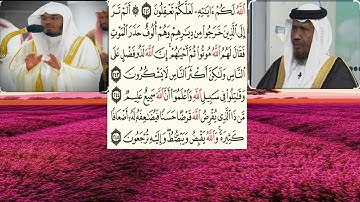 ٱللَّهُ لَكُمْ ءَايَٰتِهِۦ لَعَلَّكُمْ تَعْقِلُونَ ٢٤٢ أَلَمْ تَرَ
إِلَى ٱلَّذِينَ خَرَجُوا۟ مِن دِيَٰرِهِمْ وَهُمْ أُلُوفٌ حَذَرَ ٱلْمَوْتِ
فَقَالَ لَهُمُ ٱللَّهُ مُوتُوا۟ ثُمَّ أَحْيَٰهُمْ إِنَّ ٱللَّهَ لَذُو فَضْلٍ عَلَى
ٱلنَّاسِ وَلَٰكِنَّ أَكْثَرَ ٱلنَّاسِ لَا يَشْكُرُونَ ٢٤٣
وَقَٰتِلُوا۟ فِى سَبِيلِ ٱللَّهِ وَٱعْلَمُوٓا۟ أَنَّ ٱللَّهَ سَمِيعٌ عَلِيمٌ ٢٤٤
مَّن ذَا ٱلَّذِى يُقْرِضُ ٱللَّهَ قَرْضًا حَسَنًا فَيُضَٰعِفَهُۥ لَهُۥٓ أَضْعَافًا
كَثِيرَةً وَٱللَّهُ يَقْبِضُ وَيَبْصُۜطُ وَإِلَيْهِ تُرْجَعُونَ ٢٤٥